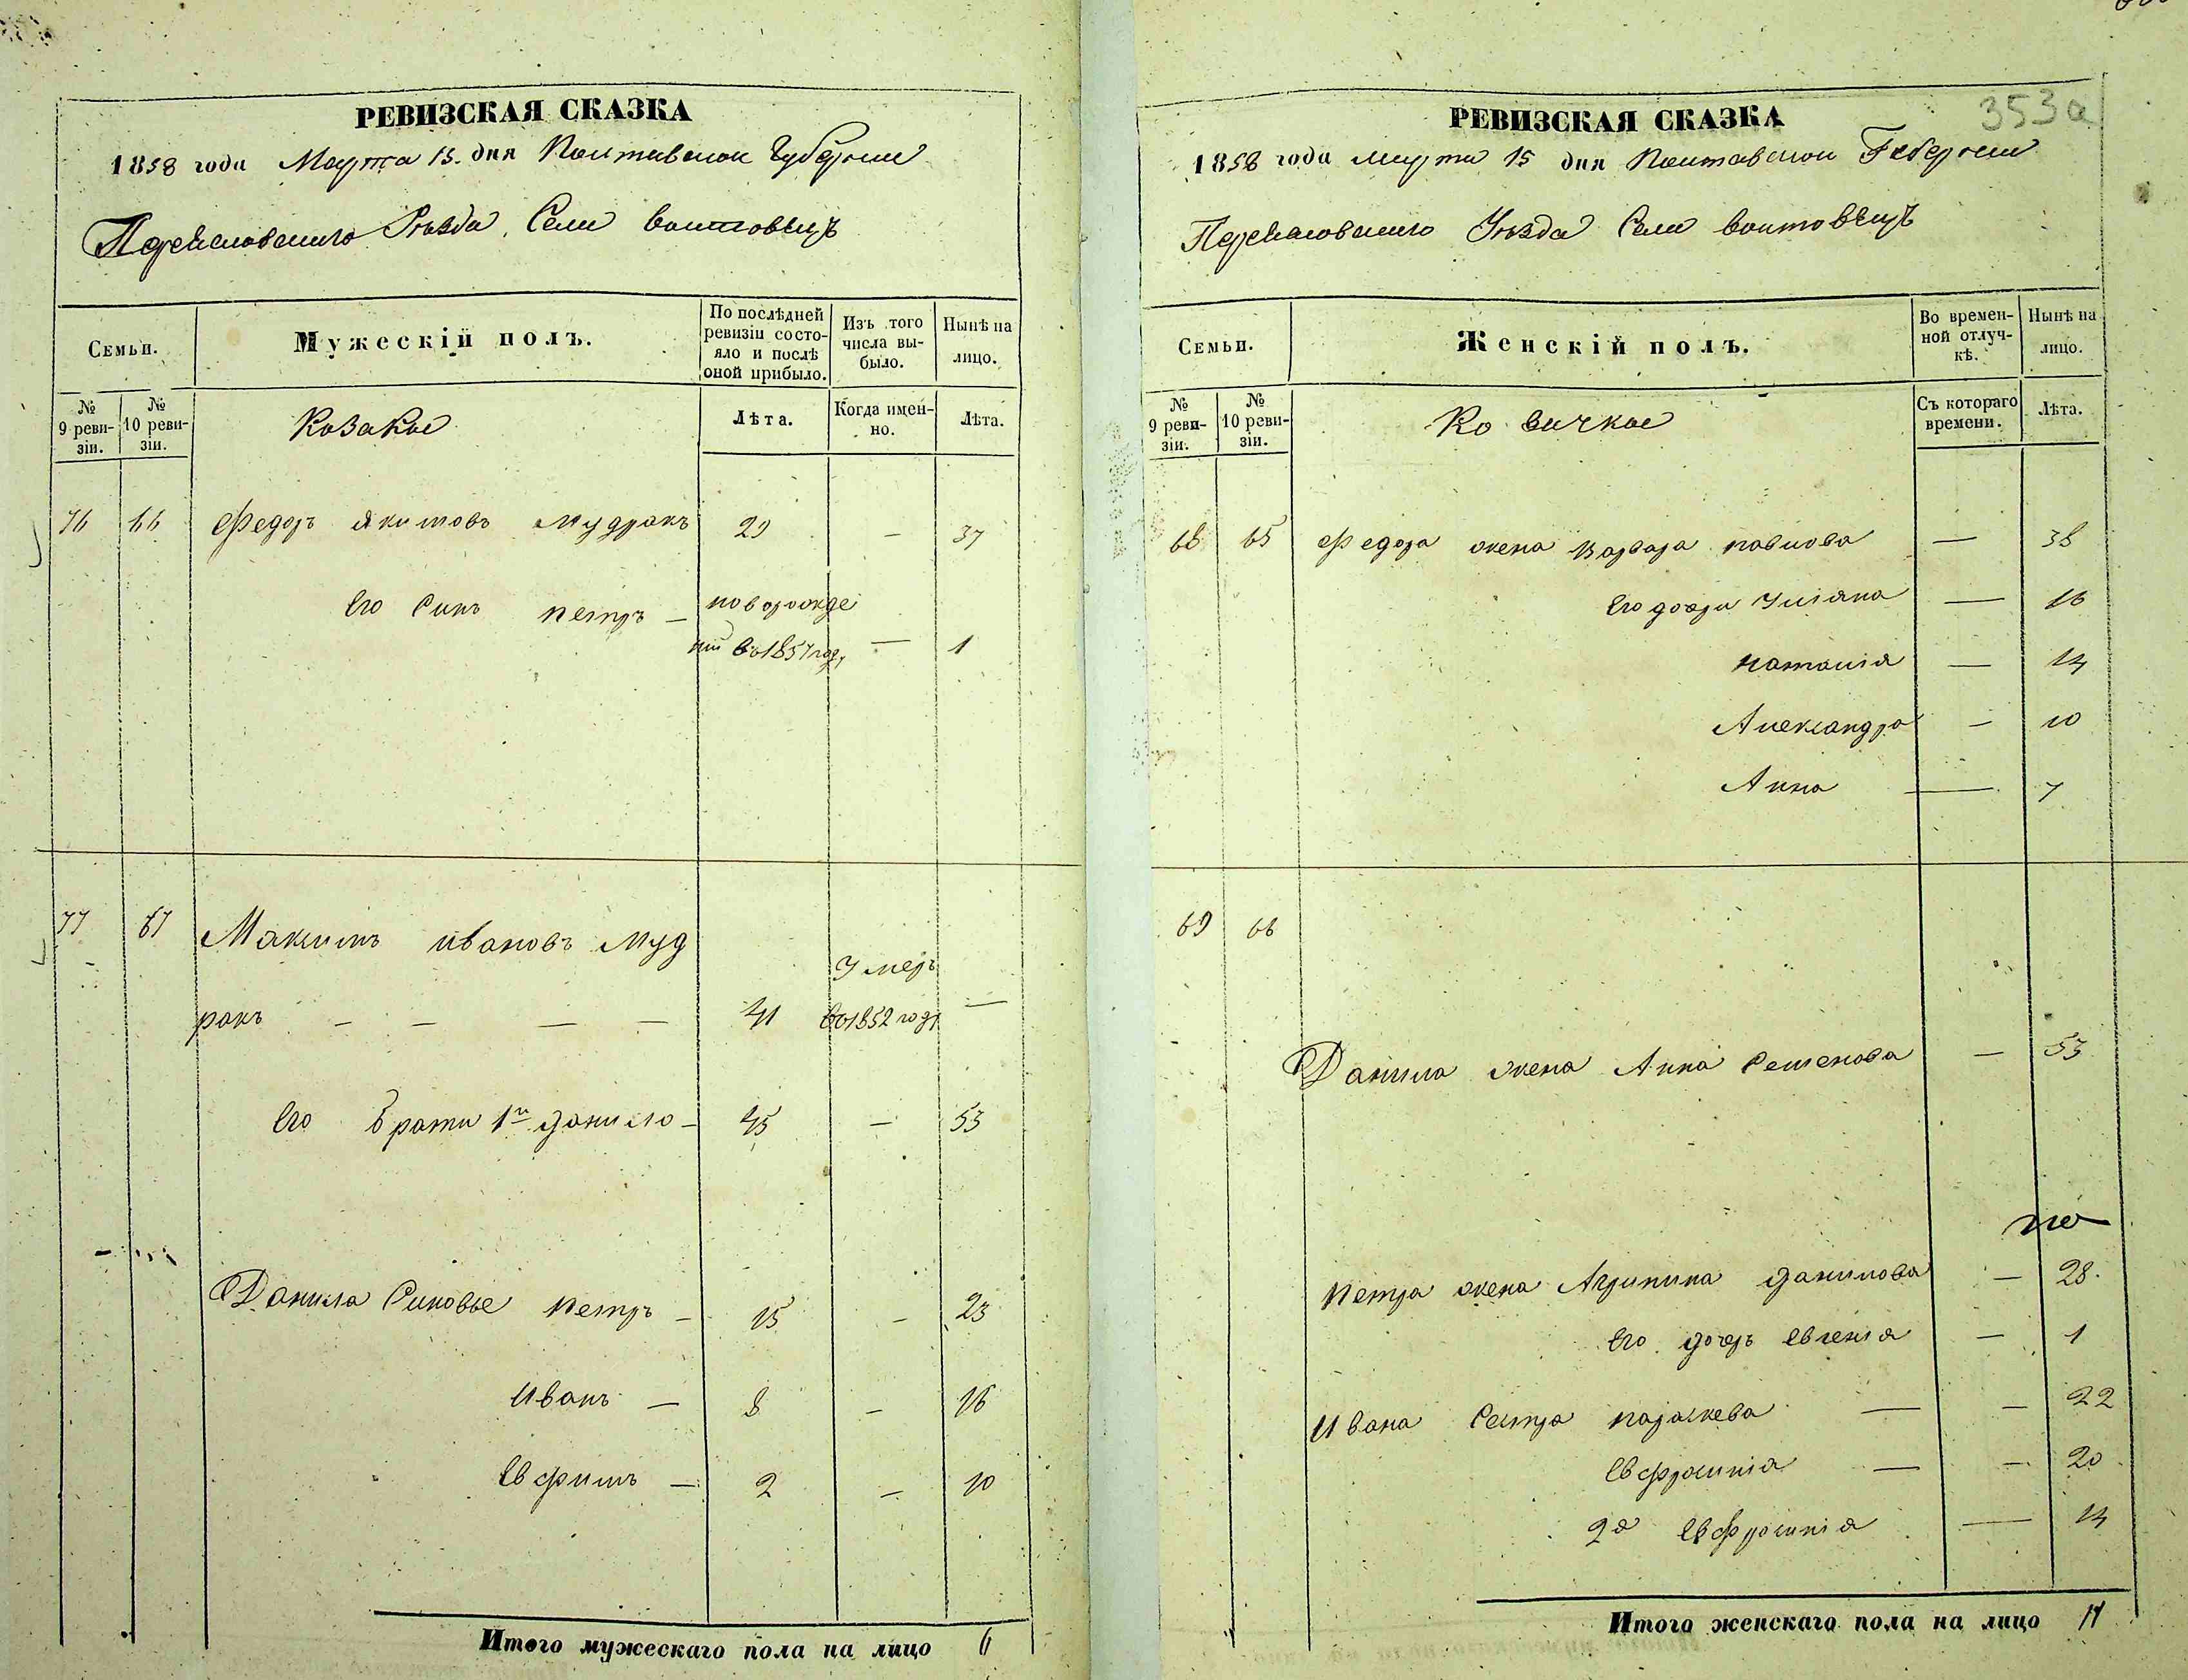 РЕВИЗСКАЯ СКАЗКА
1858 года Марта 15. дня Полтавской Губернии
Переяславского Уѣзда, Села Воитовецъ
Семьи.
Мужескій полъ.
По послѣдней ревизіи состояло и послѣ оной прибыло.
Изъ того числа выбыло.
Нынѣ на лицо.
№ 9 ревизіи.
№ 10 ревизіи.
Козаки
Лѣта.
Когда именно.
Лѣта.
76 66 Федоръ Якимовъ Мудракъ 29 — 37
Его Синъ Петръ — новорожде
ний во 1857 году — 1
77 67 Максимъ Ивановъ Муд
Умеръ
ракъ — — — — 41 во 1852 году —
Его Брати 1й Данило — 45 — 53
Данила Синовье Петръ — 15 — 23
Иванъ — 8 — 16
Евфимъ — 2 — 10
Итого мужескаго пола на лицо 6
353а
РЕВИЗСКАЯ СКАЗКА
1858 года Марта 15 дня Полтавской Губернии
Переяславского Уѣзда Села Воитовецъ
Семьи.
Женскій полъ.
Во временной отлучкѣ.
Нынѣ на лицо.
№ 9 ревизіи.
№ 10 ревизіи.
Козачки
Съ котораго времени.
Лѣта.
68 65 Федора жена Варвара Павлова — 38
Его дочри Уліяна — 16
Наталія — 14
Александра — 10
Анна — 7
69 66
Данила жена Анна Семенова — 53
Петра жена Агрипина Данилова — 28.
Его дочрь Евгенія — 1
Ивана Сестра Параскева — — 22
Евфросинія — — 20
2я Евфросинія — 14
Итого женскаго пола на лицо 11